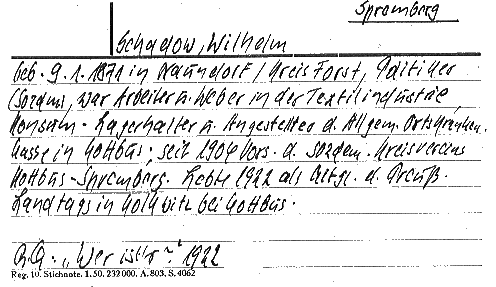 Spremberg
Schadow, Wilhelm
geb. 9.1.1871 in Naundorf / Kreis Forst, Politiker
(Sozdem), war Arbeiter u. Weber in der Textilindustrie
Konsum-Lagerhalter u. Angestellter d. Allgem. Ortskranken-
kasse in Cottbus; seit 1906 Vors. d. Sozdem. Kreisvereins
Kottbus-Spremberg. Lebte 1922 als Mitgl. d. Preuß.
Landtags in Kolkwitz bei Cottbus.
"Wer ist's?" 1922
Reg. 10. Stichnote. 1. 50. 232000. A. 803. S. 4062